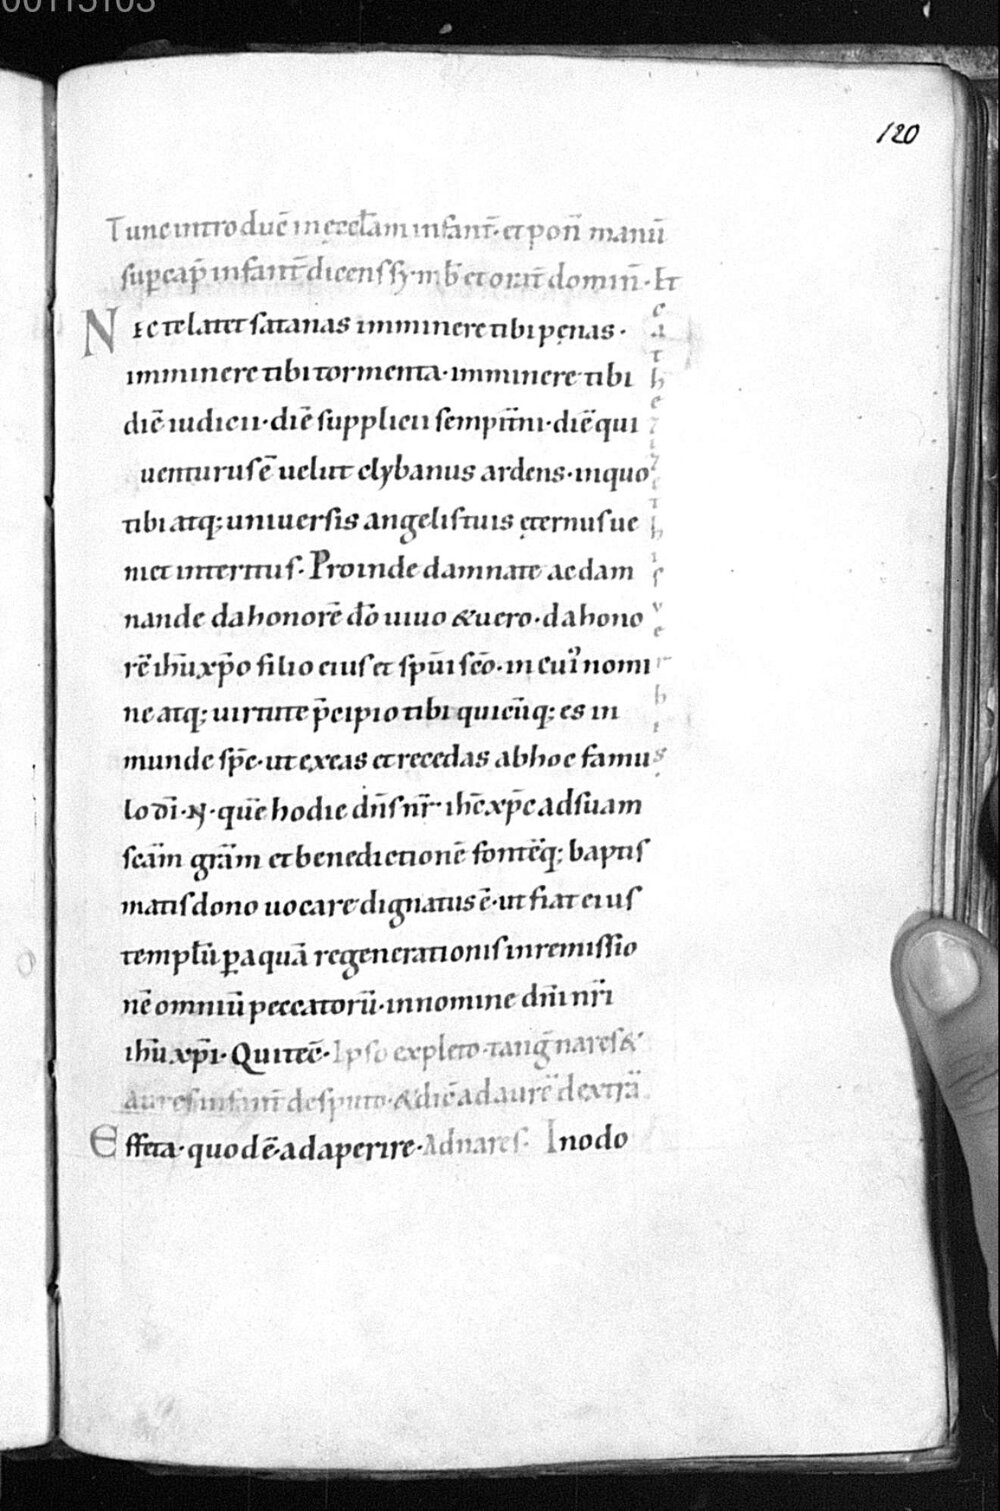 00115103
120
Tunc introduc̄ in ęccl̄am infant̄· et pon̄ manū
sup cap̄ infant̄ dicens sȳmb̄ et orat̄ domin̄· Et
cathezizet his verbis
Nec te latet satanas imminere tibi pęnas·
imminere tibi tormenta· imminere tibi
diē iudicii· diē supplicii sempit̄ni· diē qui
uenturus ē uelut clybanus ardens· in quo
tibi atq; uniuersis angelis tuis ęternus ue
niet interitus· Proinde damnate ac dam
nande da honorē dō uiuo & uero· da hono
rē ihū xp̄o filio eius et sp̄ui sc̄o· in cuī nomi
ne atq; uirtute p̄cipio tibi quicūq; es in
munde sp̄c· ut exeas et recedas ab hoc famu
lo dī· N· quē hodie dn̄s nr̄ ihc̄ xp̄c ad suam
scām grām et benedictionē fontēq; baptis
matis dono uocare dignatus ē· ut fiat eius
templū p aquā regenerationis in remissio
nē omniū peccatorū· in nomine dn̄i nr̄i
ihū xp̄i· Qui tec̄· Ipso expleto· tanḡ nares &
aures infant̄ de sputo· & dic̄ ad aurē dextrā·
Effeta· quod ē· adaperire· Ad nares· In odo